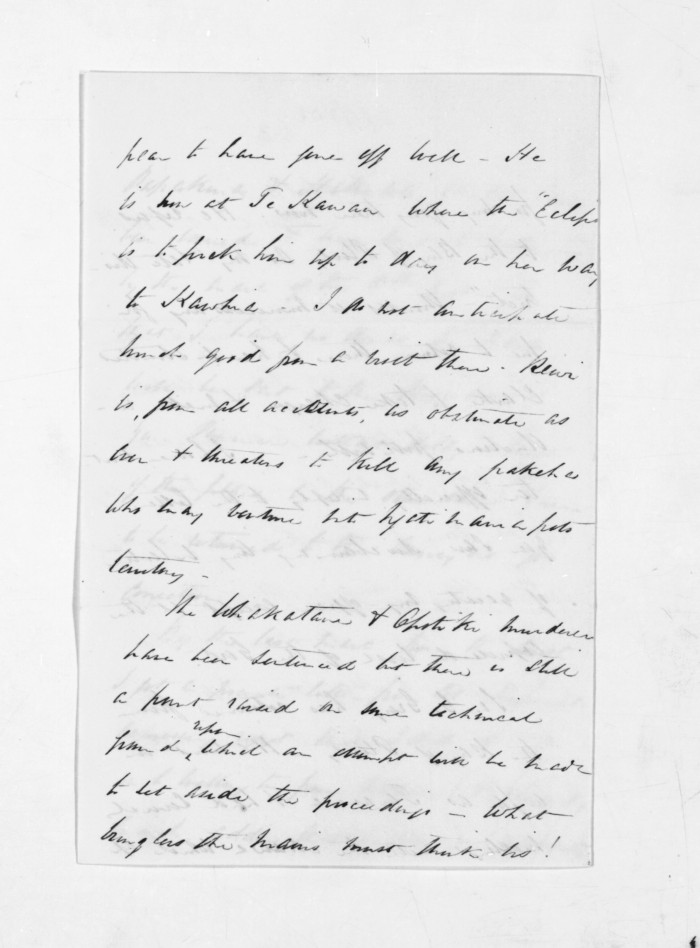 pear to have gone off well – He
is now at Te Kawau where the "Eclipse
is to pick him up to day on her way
to Kawhia I do not anticipate
much good from a visit there – Rewi
is, from all accounts, as obstinate as
ever & threatens to kill any pakehas
who may venture into Ngatimaniapoto
territory –
The Whakatane & Opotiki murderers
have been sentenced but there is still
a point raised on some technical
ground, upon which an attempt will be made
to set aside the proceedings – What
bunglers the Maoris must think us!